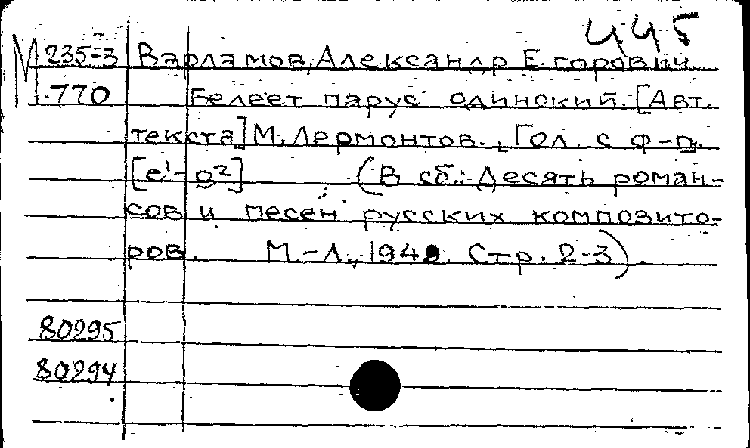 445
М 235-3 Варламов, Александр Егорович
1.770 Белеет парус одинокий. [Авт.
текста] М. Лермонтов., Гол. с ф-п.
[e¹-g²] (В сб.: Десять роман-
сов и песен русских композито-
ров. М.-Л., 1949. Стр. 2-3).
80295
80294